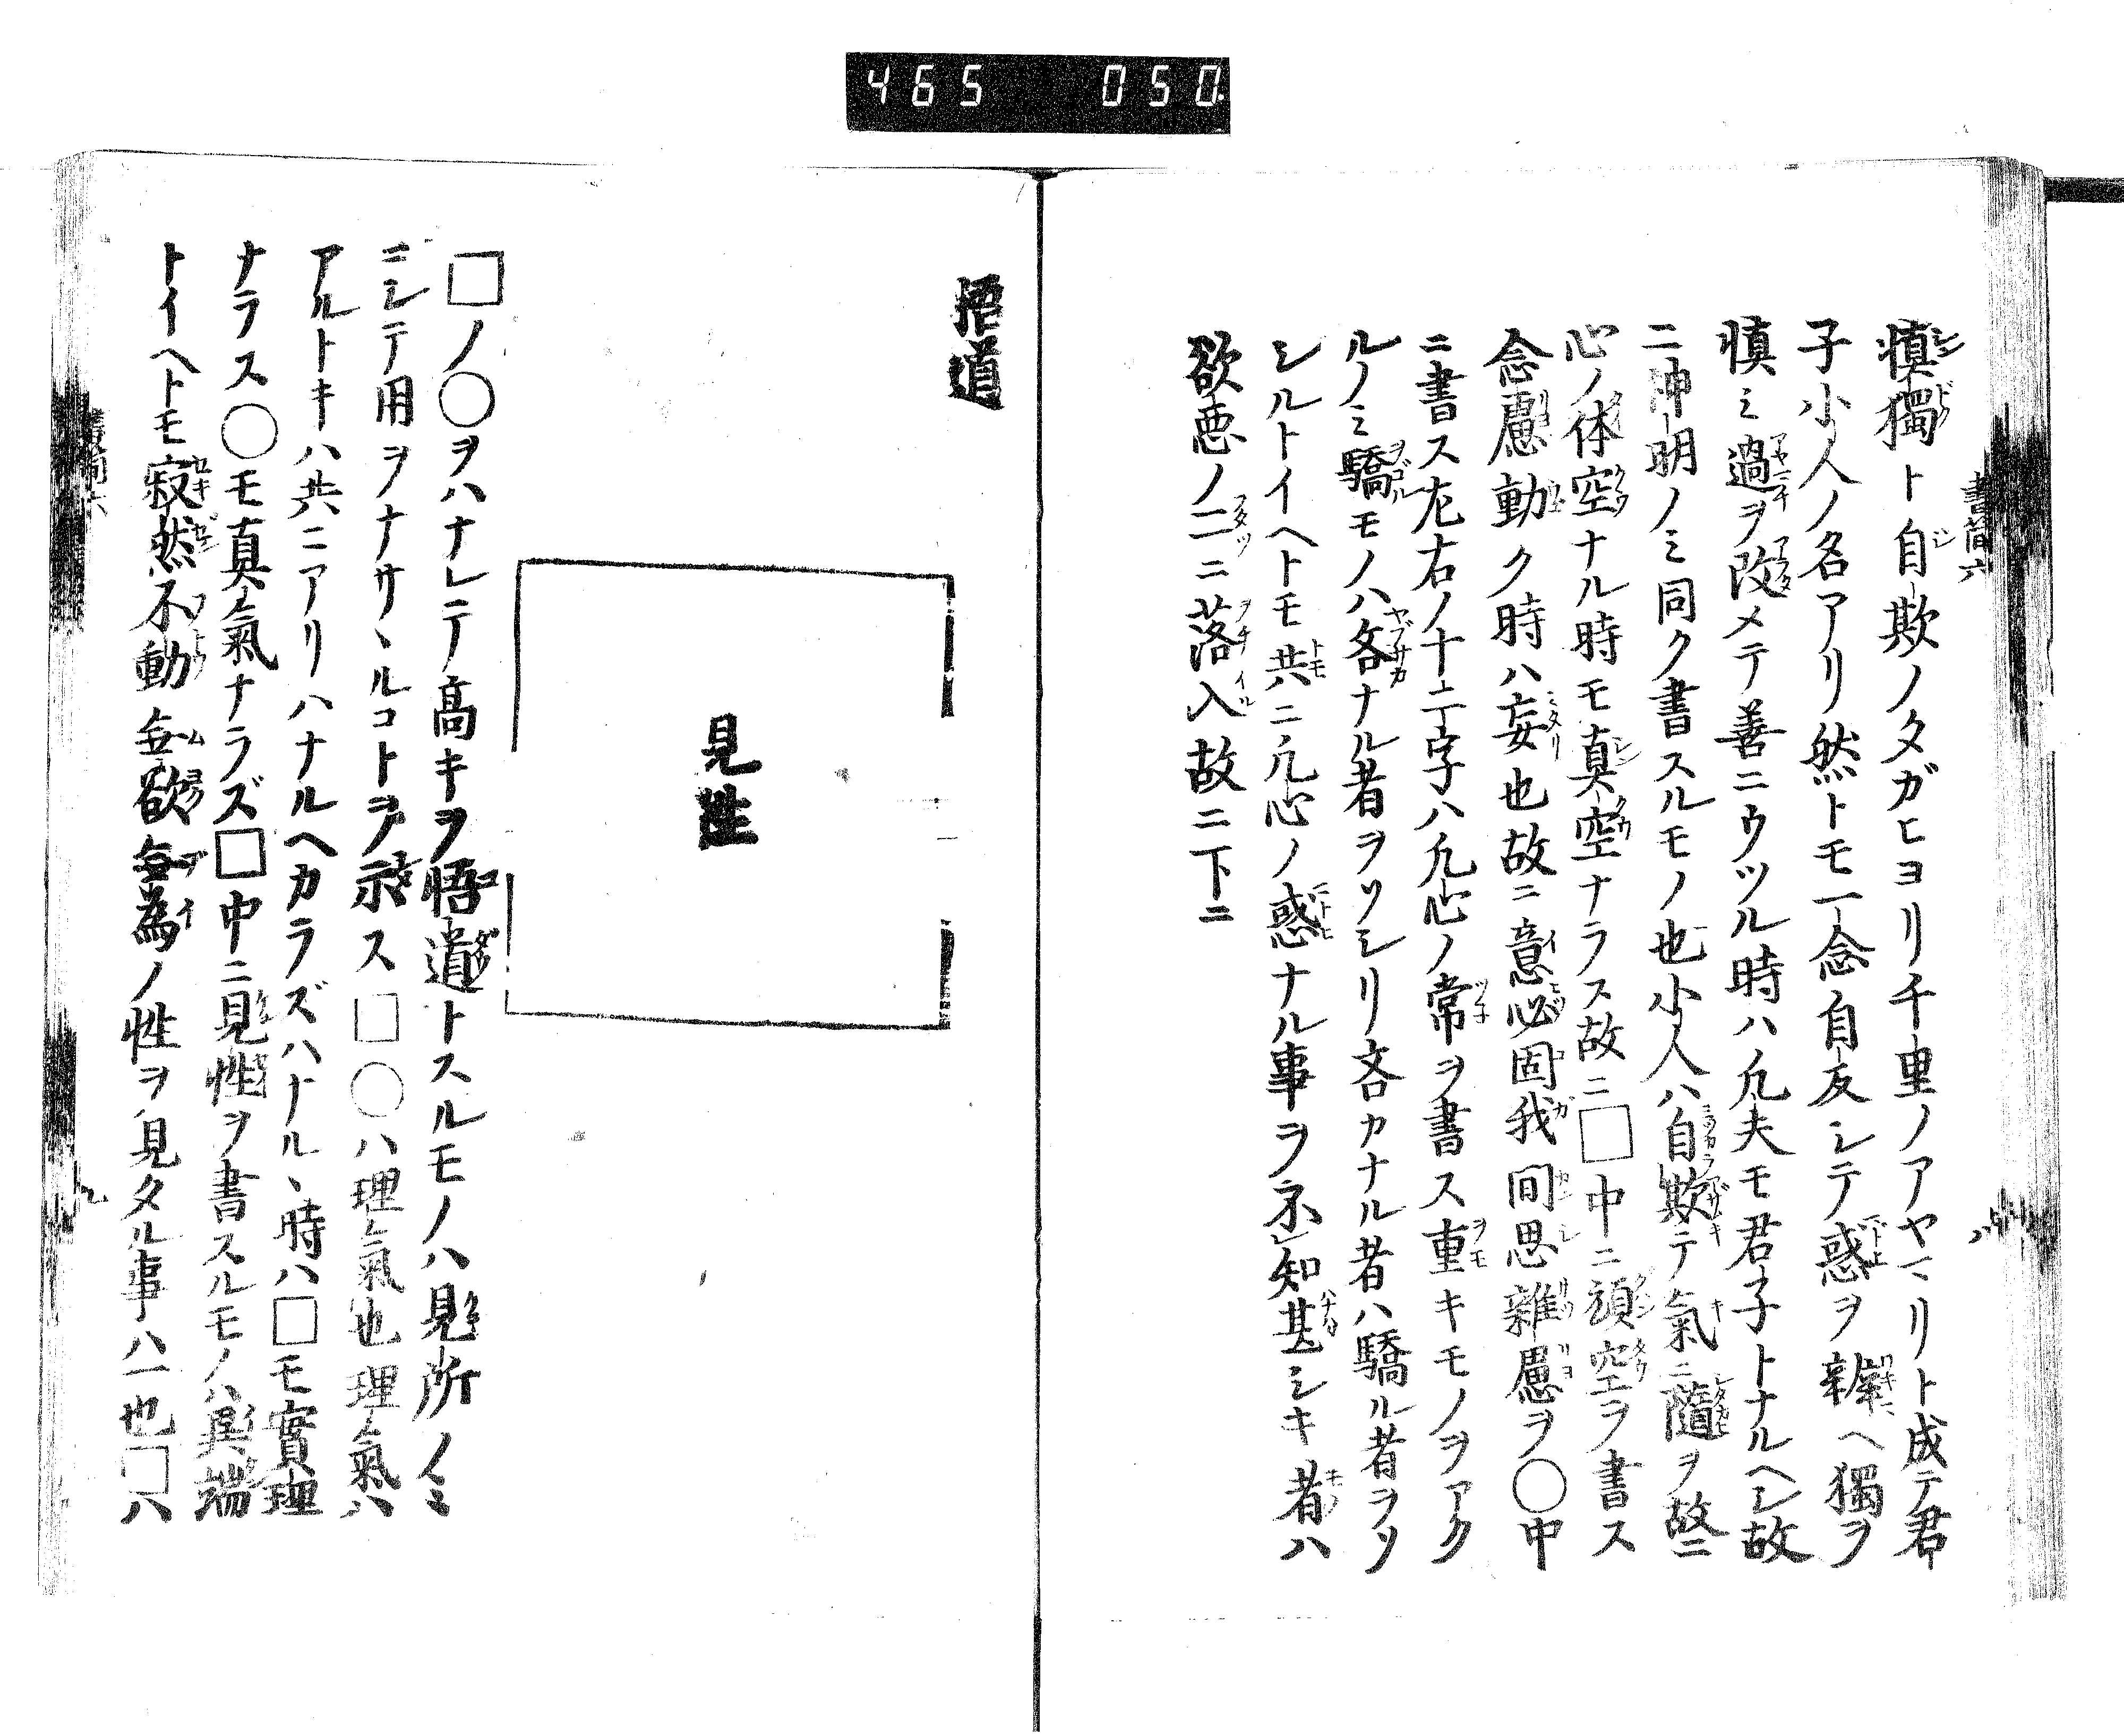 465 050
書簡六
慎獨ト自欺ノタガヒヨリ千里ノアヤマリト成テ君
子小人ノ名アリ然トモ一念自反シテ惑ヲ辨ヘ獨ヲ
慎ミ過ヲ改メテ善ニウツル時ハ凡夫モ君子トナルヘシ故
ニ神明ノミ同ク書スルモノ也小人ハ自欺テ氣ニ隨ヲ故ニ
心ノ体空ナル時モ真空ナラス故ニ□中ニ頑空ヲ書ス
念慮動ク時ハ妄也故ニ意必固我間思雜慮ヲ○中
ニ書ス左右ノ十二字ハ凡心ノ常ヲ書ス重キモノヲアク
ルノミ驕モノハ吝ナル者ヲソシリ吝カナル者ハ驕ル者ヲソ
シルトイヘトモ共ニ凡心ノ惑ナル事ヲ不知甚シキ者ハ
欲惡ノ二ニ落入故ニ下ニ
悟道
見性
□ノ○ヲハナレテ高キヲ悟道トスルモノハ見所ノミ
ニシテ用ヲナサヽルコトヲ示ス□○ハ理氣也理氣ハ
アルトキハ共ニアリハナルヘカラズハナルヽ時ハ□モ實理
ナラス○モ真氣ナラズ□中ニ見性ヲ書スルモノハ異端
トイヘトモ寂然不動無欲無為ノ性ヲ見タル事ハ一也□ハ
書簡六